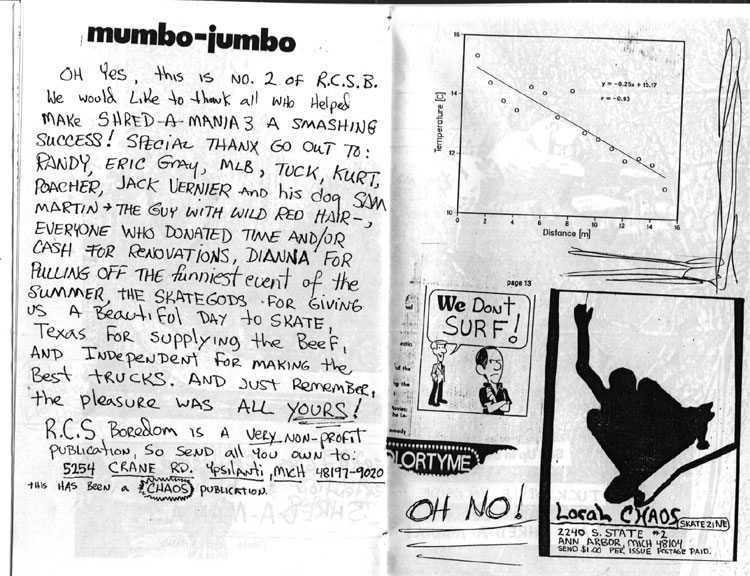 mumbo-jumbo
OH Yes, this is NO. 2 OF R.C.S.B.
We would Like to thank all who Helped
MAKE SHRED-A-MANIA 3 A SMASHING
SUCCESS! SPECIAL THANX GO OUT TO:
RANDY, ERIC Gray, MLB, TUCK, KURT,
POACHER, JACK VERNIER and his dog SAM
MARTIN → THE GUY WITH WILD RED HAIR-,
EVERYONE WHO DONATED TIME AND/OR
CASH FOR RENOVATIONS, DIANNA FOR
PULLING OFF THE funniest event of the
SUMMER, THE SKATEGODS FOR GIVING
US A BeautiFul DAY to SKATE,
Texas For Supplying the Beef,
AND Independent for making the
Best TRUCKS. AND JUST Remember,
the pleasure was ALL YOURS!
R.C.S Boredom is A very non-profit
publication, so send all you own to:
5154 CRANE RD. Ypsilanti, MICH 48197-9020
tHIS HAS BEEN A CHAOS PUBLICATION.
16
14
12
10
Temperature [C]
y = -0.25x + 15.17
r = -0.93
0 2 4 6 8 10 12 14 16
Distance [m]
page 13
We DON'T
SURF!
LORTYME
OH NO!
Local CHAOS
SKATEZINE
2240 S. STATE #2
ANN ARBOR, MICH 48104
SEND $1.00 PER ISSUE POSTAGE PAID.